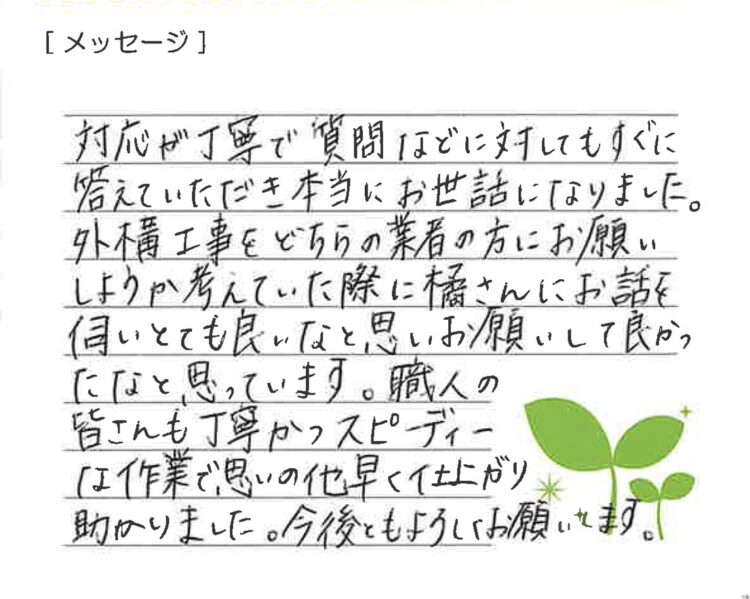 [ メッセージ ]
対応が丁寧で質問などに対してもすぐに
答えていただき本当にお世話になりました。
外構工事をどちらの業者の方にお願い
しようか考えていた際に橘さんにお話を
伺いとても良いなと思いお願いして良かっ
たなと思っています。職人の
皆さんも丁寧かつスピーディー
な作業で思いの他早く仕上がり
助かりました。今後ともよろしくお願いします。